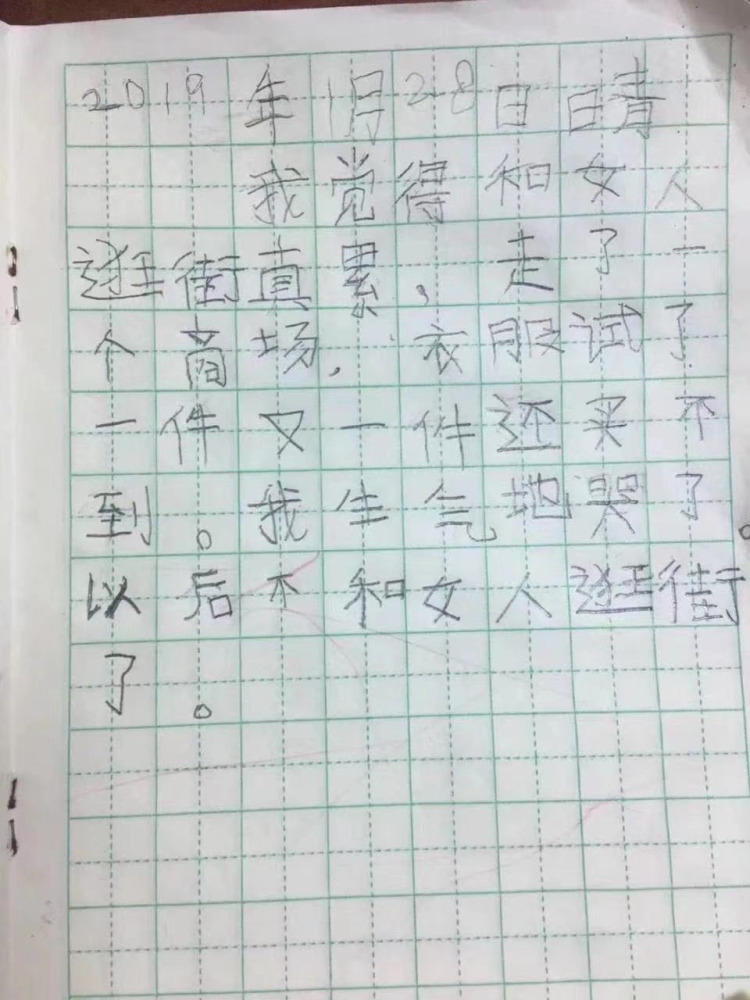 2019年1月28日 晴
我觉得和女人
逛街真累，走了一
个商场，衣服试了
一件又一件还买不
到。我生气地哭了。
以后不和女人逛街
了。